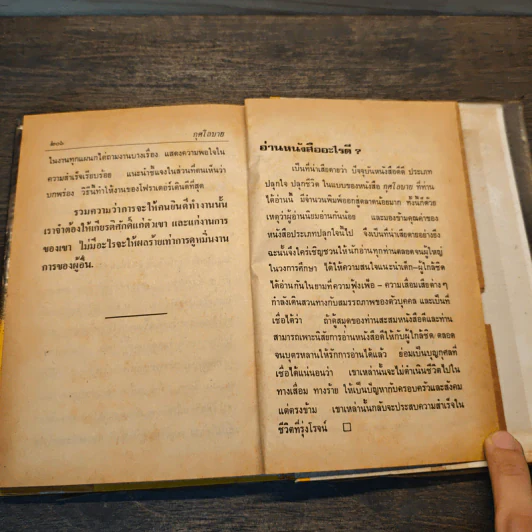 ๒๐๖
กุศโลบาย
ในงานทุกแผนกไต่ถามงานบางเรื่อง แสดงความพอใจใน
ความสำเร็จเรียบร้อย แนะนำชี้แจงในส่วนที่ตนเห็นว่า
บกพร่อง วิธีนี้ทำให้งานของโฟรานต์อร์เดินดีที่สุด
รวมความว่าการจะให้คนกินดีทำงานนั้น
เราจำต้องให้เกียรติศักดิ์แก่ตัวเขา และแก่งานการ
ของเขา ไม่มีอะไรจะให้ผลร้ายเท่าการดูหมิ่นงาน
การของผู้อื่น.
อ่านหนังสืออะไรดี ?
เป็นที่น่าเสียดายว่า ปัจจุบันหนังสือดีดี ประเภท
ปลุกใจ ปลุกชีวิต ในแบบของหนังสือ กุศโลบาย ที่ท่าน
ได้อ่านนี้ มีจำนวนพิมพ์ออกสู่ตลาดน้อยมาก ทั้งนี้ก็ด้วย
เหตุว่าผู้อ่านนิยมอ่านกันน้อย และมองข้ามคุณค่าของ
หนังสือประเภทปลุกใจนี้ไป จึงเป็นที่น่าเสียดายอย่างยิ่ง
ฉะนั้นจึงใคร่เชิญชวนให้นักอ่านทุกท่านตลอดจนผู้ใหญ่
ในวงการศึกษา ได้ให้ความสนใจแนะนำเด็ก-ผู้ใกล้ชิด
ได้อ่านกันในยามที่ความฟุ้งเฟ้อ - ความเสื่อมเสียต่างๆ
กำลังเดินสวนทางกับสมรรถภาพของตัวบุคคล และเป็นที่
เชื่อได้ว่า ถ้าตู้สมุดของท่านสะสมหนังสือดีและท่าน
สามารถเพาะนิสัยการอ่านหนังสือดีให้กับผู้ใกล้ชิด ตลอด
จนบุตรหลานให้รักการอ่านได้แล้ว ย่อมเป็นบุญกุศลที่
เชื่อได้แน่นอนว่า เขาเหล่านั้นจะไม่ดำเนินชีวิตไปใน
ทางเสื่อม ทางร้าย ให้เป็นปัญหากับครอบครัวและสังคม
แต่ตรงข้าม เขาเหล่านั้นกลับจะประสบความสำเร็จใน
ชีวิตที่รุ่งโรจน์